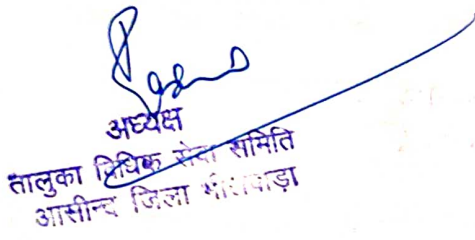 अध्यक्ष
तालुका विधिक सेवा समिति
आसीन्द जिला भीलवाड़ा